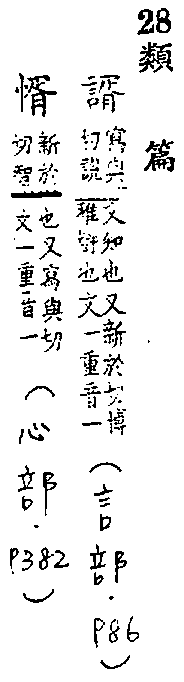 28類篇
諝寫與切說文知也又新於切博雅也文一重音一（言部．P86）
㥠新於切智也又寫與切文一重音一（心部．P382）